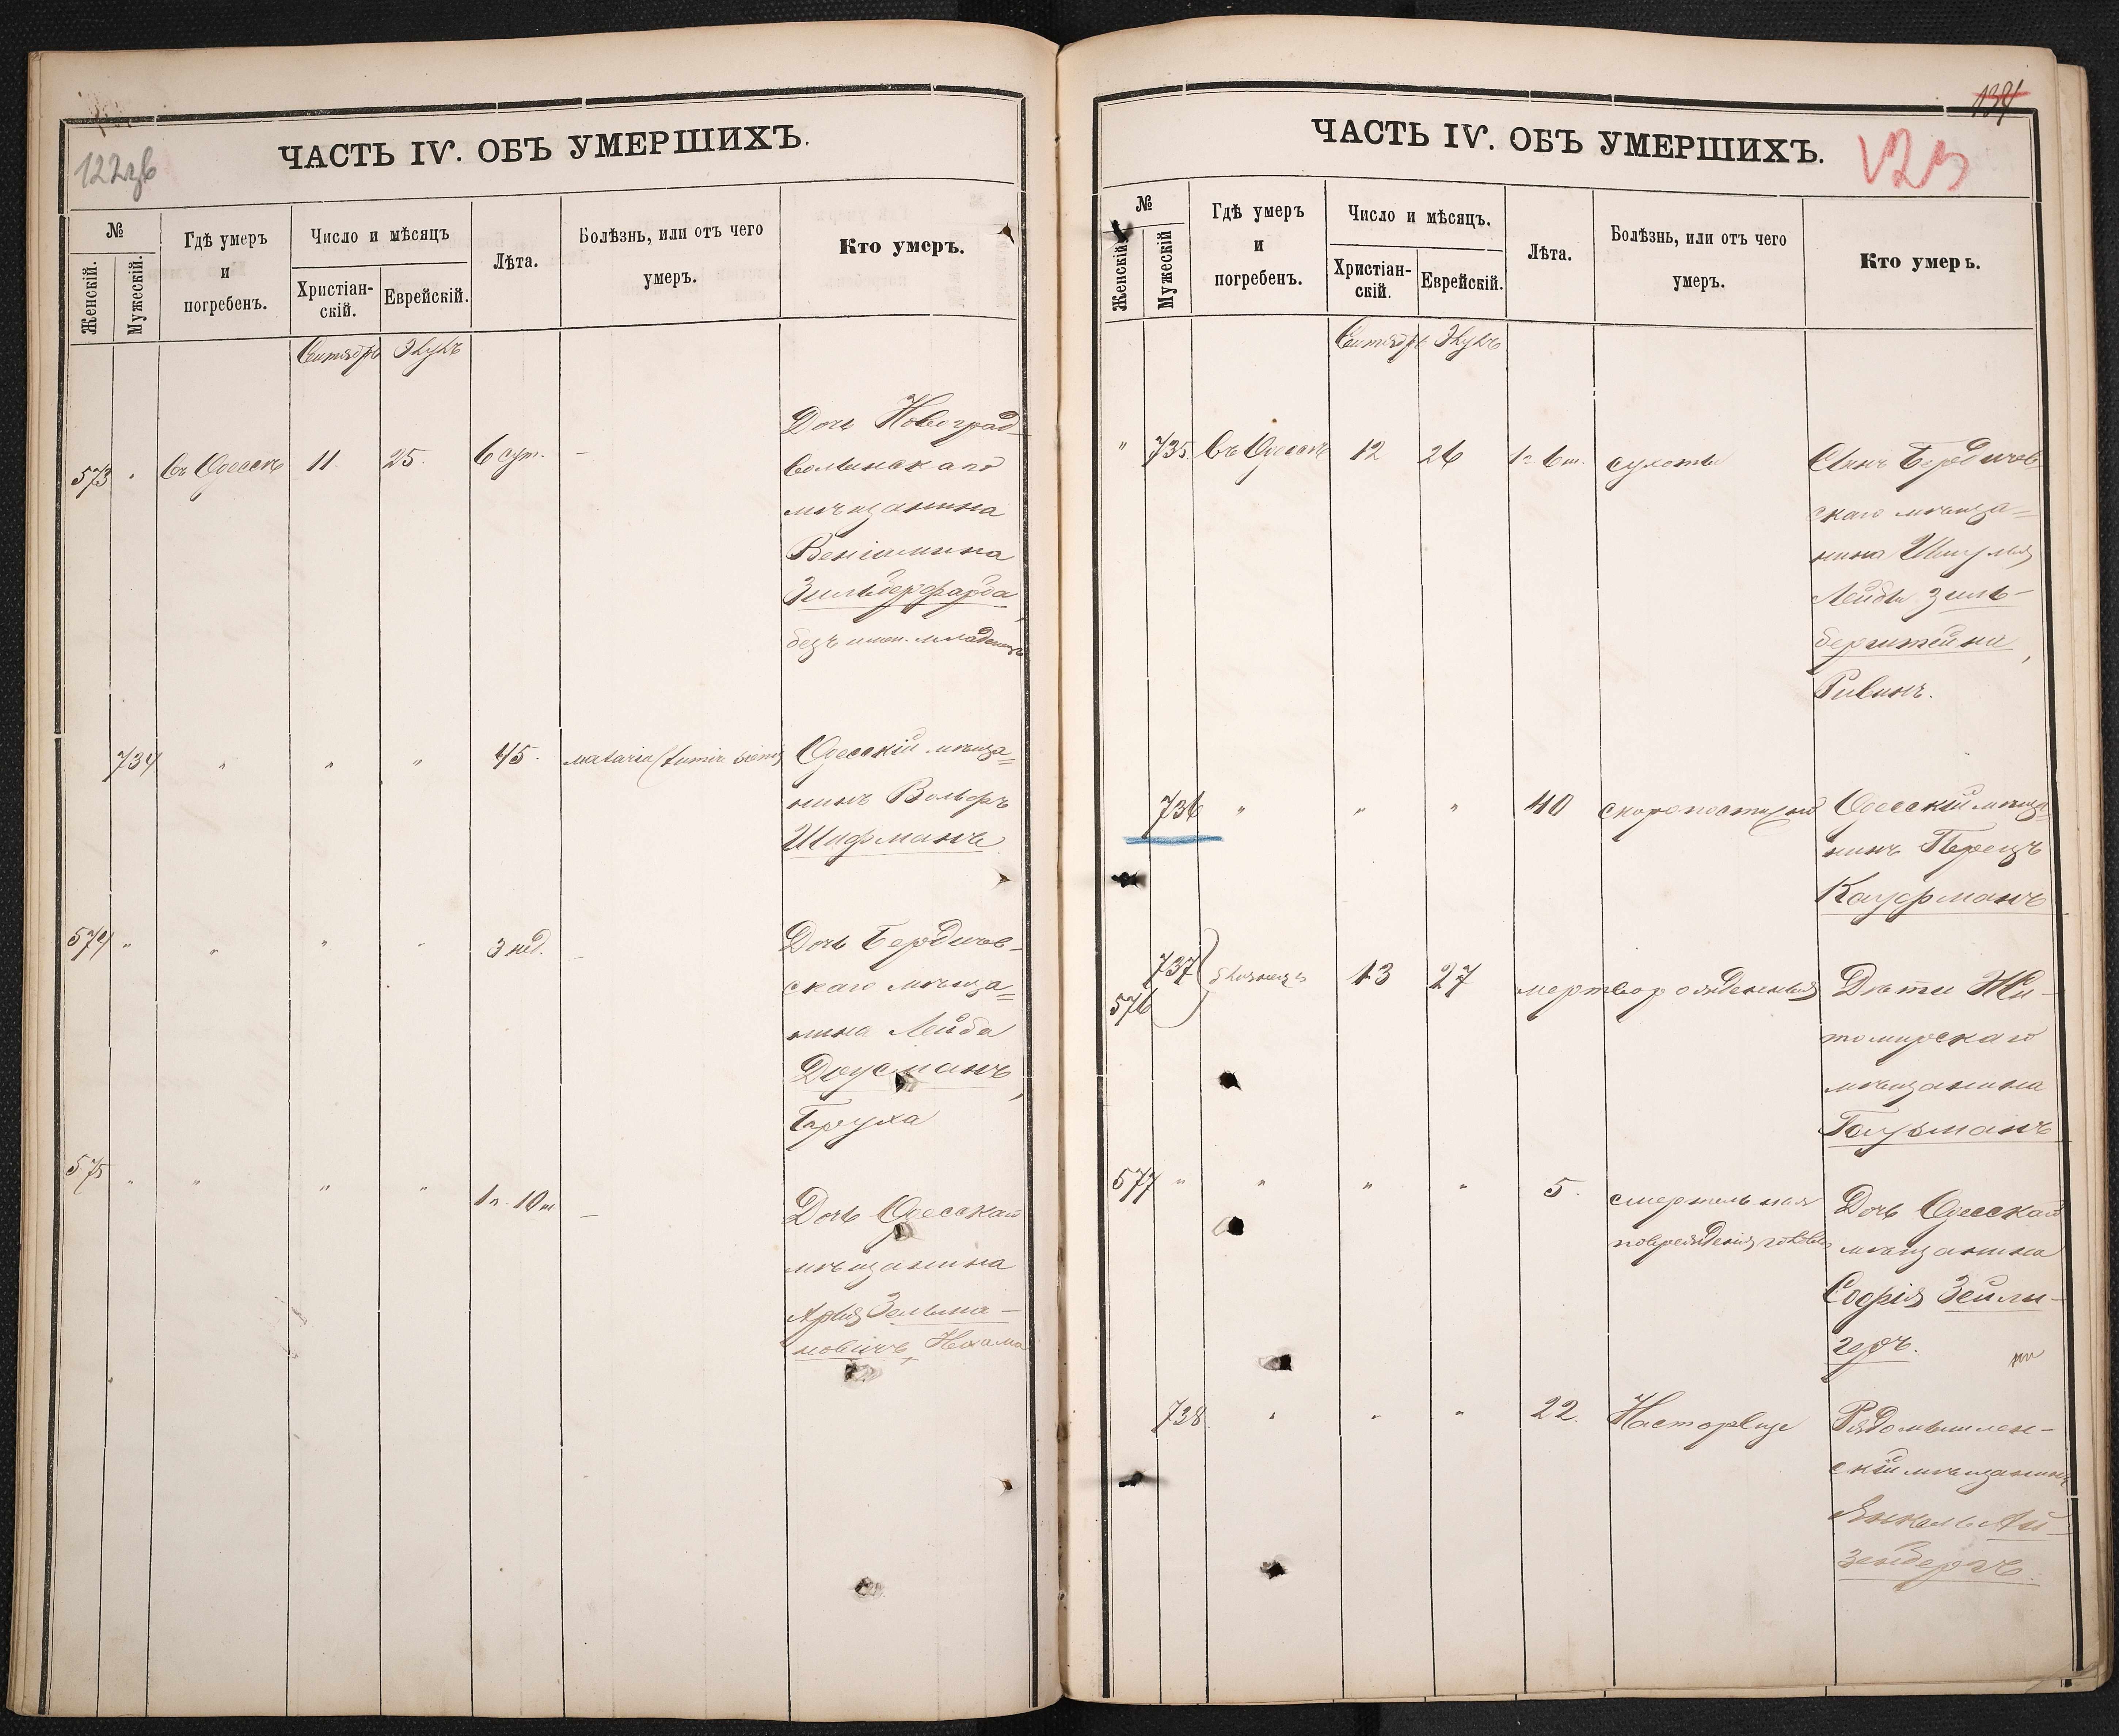 122зв
ЧАСТЬ IV. ОБЪ УМЕРШИХЪ.
№
Женскій.
Мужескій.
Гдѣ умеръ
и
погребенъ.
Число и мѣсяцъ
Христіан-
скій.
Еврейскій.
Лѣта.
Болѣзнь, или отъ чего
умеръ.
Кто умеръ.
Сентябрь Элулъ
573 " въ Одессѣ 11. 25. 6 сут. - Дочь Новоград-
волынскаго
мѣщанина
Веніамина
Зильберфарба,
безъ имен. младенецъ
734 " " " 45. Одесскій мѣща=
нинъ Вольфъ
Шифманъ
574 " " " " 3 нед. - Дочь Бердичев-
скаго мѣща=
нина Лейба
Доусманъ,
Бруха
575 " " " " 1 г. 10 м - Дочь Одесскаго
мѣщанина
Арія Зельма-
новичъ, Нехама
134
ЧАСТЬ IV. ОБЪ УМЕРШИХЪ.
123
№
Женскій
Мужескій
Гдѣ умеръ
и
погребенъ.
Число и мѣсяцъ.
Христіан-
скій.
Еврейскій.
Лѣта.
Болѣзнь, или отъ чего
умеръ.
Кто умеръ.
Сентябрь Элулъ
" 735 въ Одессѣ 12 26 1 г. 6 м. сухоты Сынъ Бердичев-
скаго мѣща=
нина Шмуля
Лейбы Зиль-
берштейна,
Рувинъ.
736 " " " 40 скоропостижно Одесскій мѣща=
нинъ Перецъ
Кауфманъ
737 близнецы 13 27 мертворожденныя Дѣти Жи-
576
томирскаго
мѣщанина
Гаузманъ
577 " " " " 5. смертельная Дочь Одесскаго
поврежденія головы мѣщанина
Софія Зейли-
геръ.
738 " " " 22. Радомысленскій
скій мѣщанинъ
Янкель Ай-
зенбергъ.